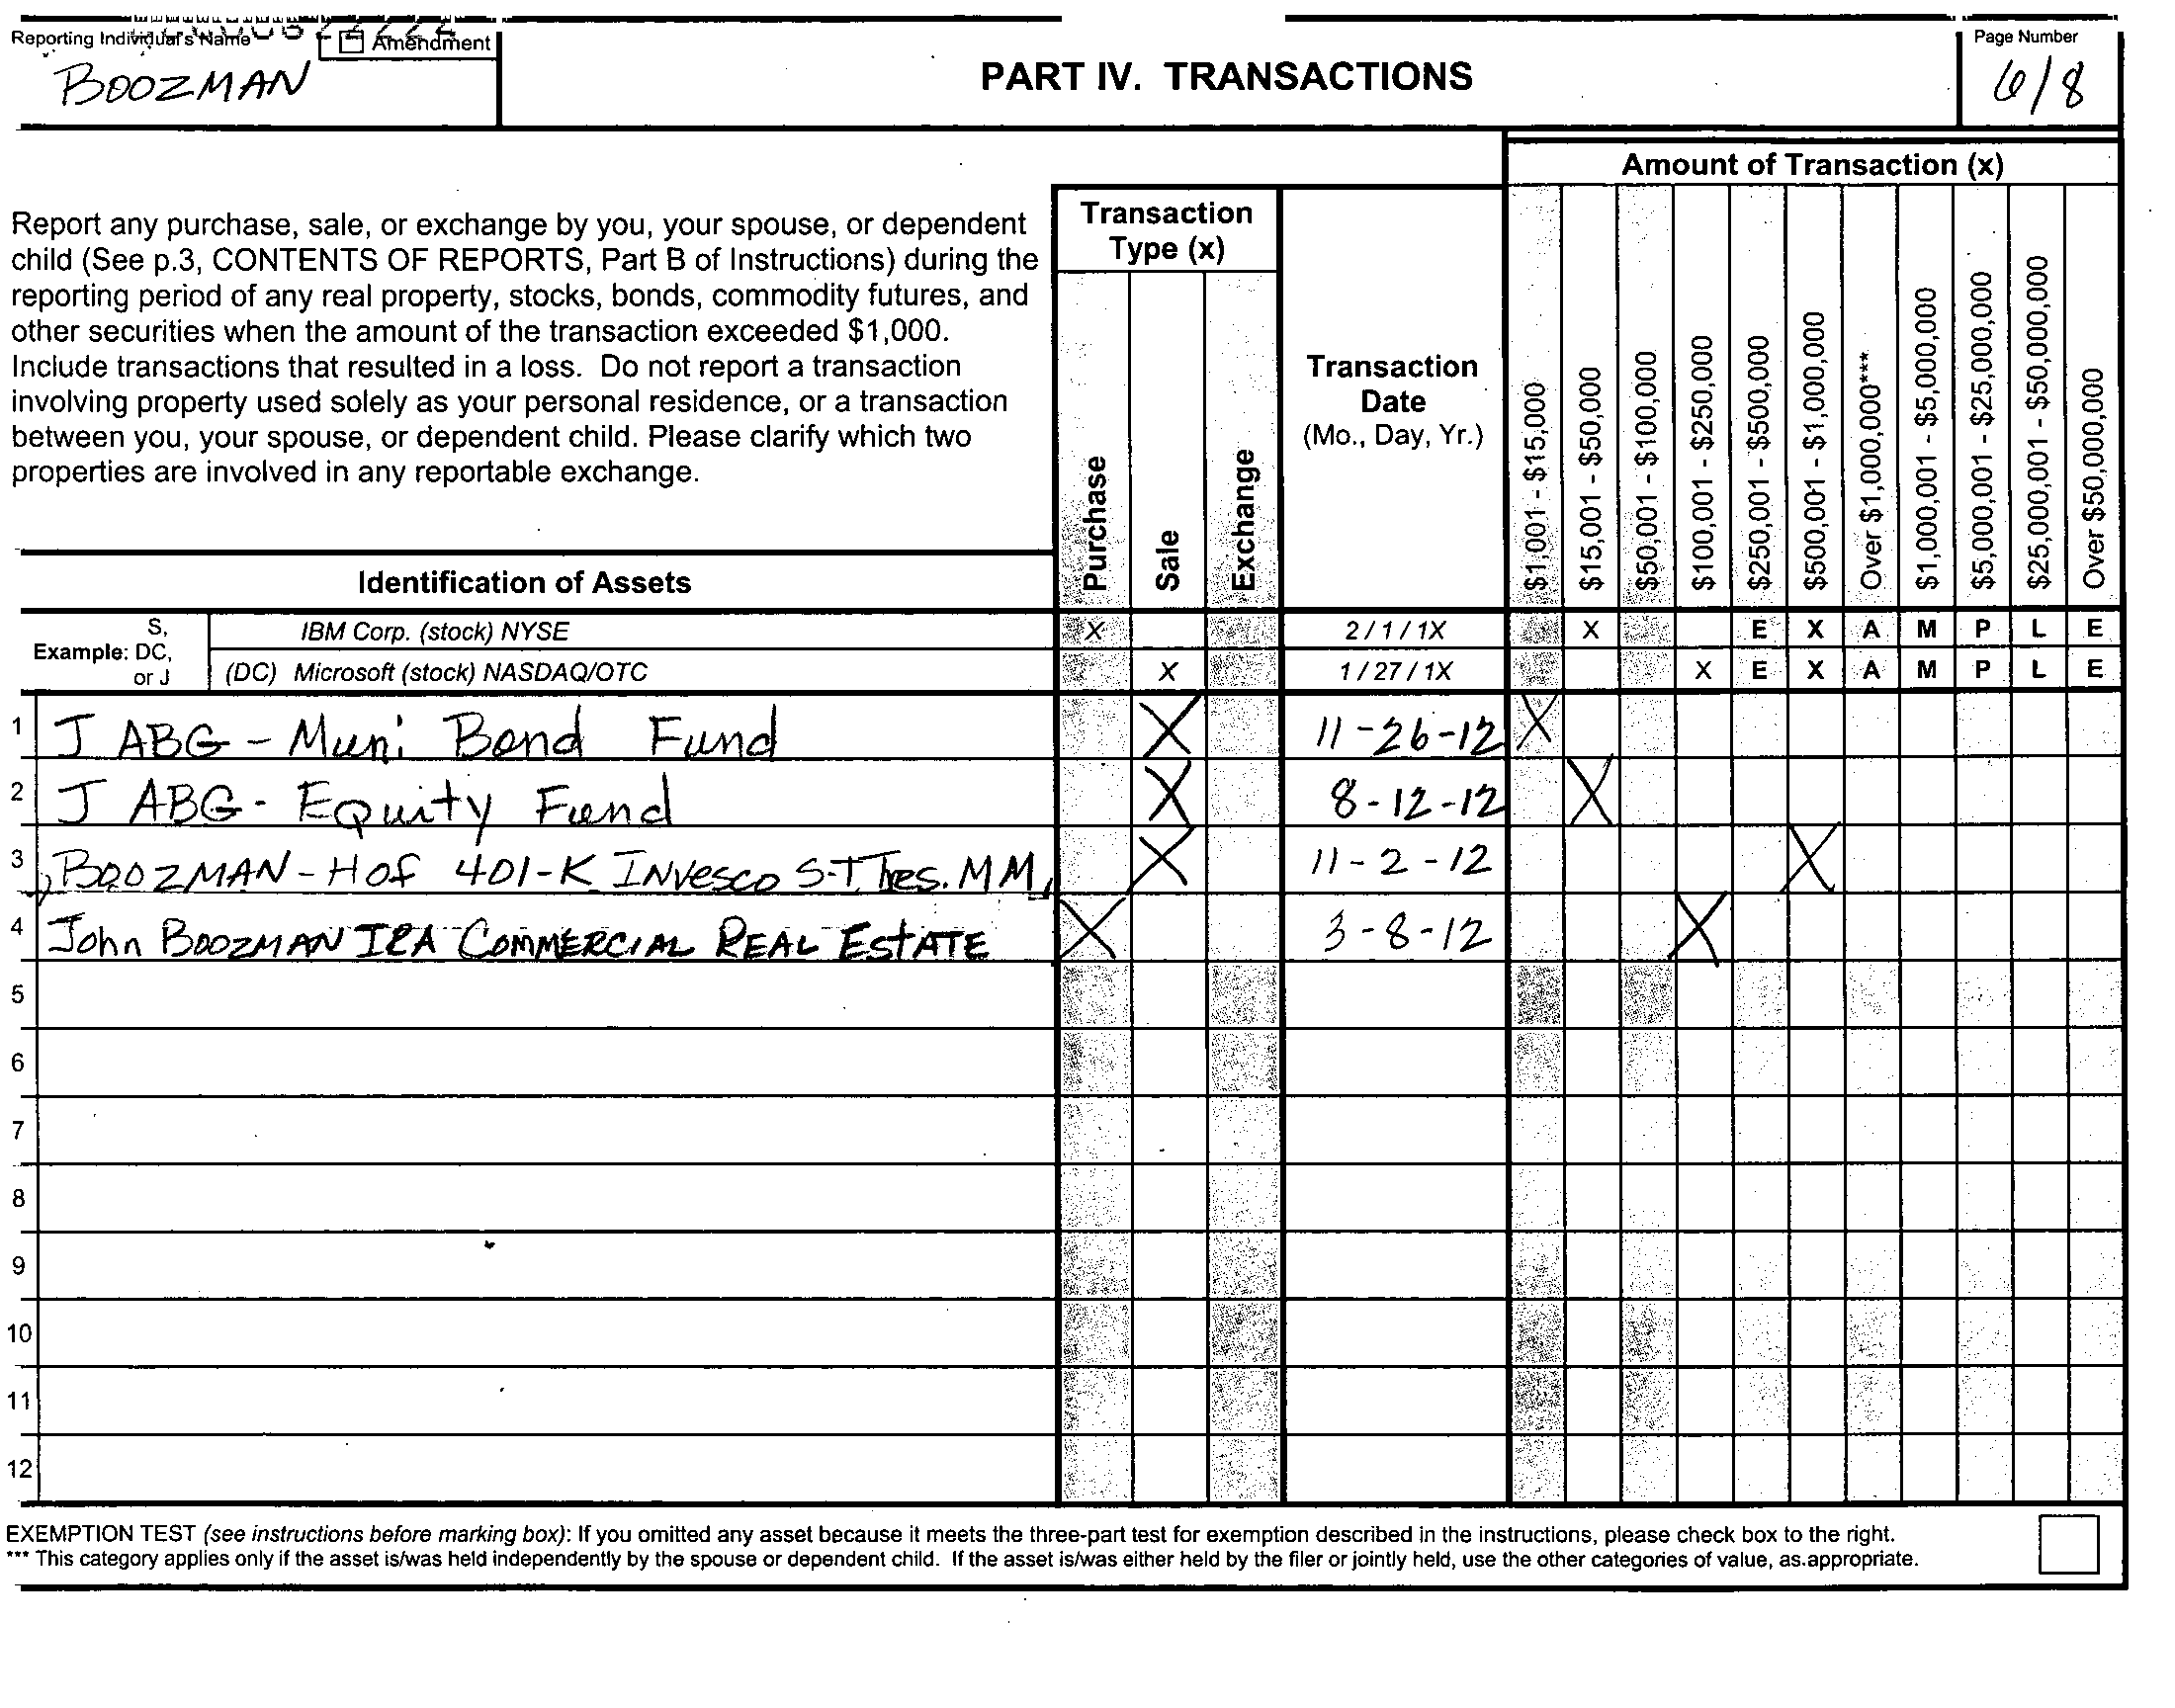 Reporting Individual's Name
Amendment
BOOZMAN
PART IV. TRANSACTIONS
Page Number
6/8
Amount of Transaction (x)
Report any purchase, sale, or exchange by you, your spouse, or dependent
child (See p.3, CONTENTS OF REPORTS, Part B of Instructions) during the
reporting period of any real property, stocks, bonds, commodity futures, and
other securities when the amount of the transaction exceeded $1,000.
Include transactions that resulted in a loss. Do not report a transaction
involving property used solely as your personal residence, or a transaction
between you, your spouse, or dependent child. Please clarify which two
properties are involved in any reportable exchange.
Transaction
Type (x)
Purchase
Sale
Exchange
Transaction
Date
(Mo., Day, Yr.)
$1,001 - $15,000
$15,001 - $50,000
$50,001 - $100,000
$100,001 - $250,000
$250,001 - $500,000
$500,001 - $1,000,000
Over $1,000,000***
$1,000,001 - $5,000,000
$5,000,001 - $25,000,000
$25,000,001 - $50,000,000
Over $50,000,000
Identification of Assets
Example: S,
DC,
or J
IBM Corp. (stock) NYSE X 2 / 1 / 1X X E X A M P L E
(DC) Microsoft (stock) NASDAQ/OTC X 1 / 27 / 1X X E X A M P L E
1 J ABG - Muni Bond Fund X 11-26-12 X
2 J ABG - Equity Fund X 8-12-12 X
3 BOOZMAN - Hof 401-K Invesco S-T Tres. MM, X 11-2-12 X
4 John BOOZMAN IRA COMMERCIAL REAL ESTATE X 3-8-12 X
5
6
7
8
9
10
11
12
EXEMPTION TEST (see instructions before marking box): If you omitted any asset because it meets the three-part test for exemption described in the instructions, please check box to the right.
*** This category applies only if the asset is/was held independently by the spouse or dependent child. If the asset is/was either held by the filer or jointly held, use the other categories of value, as appropriate.